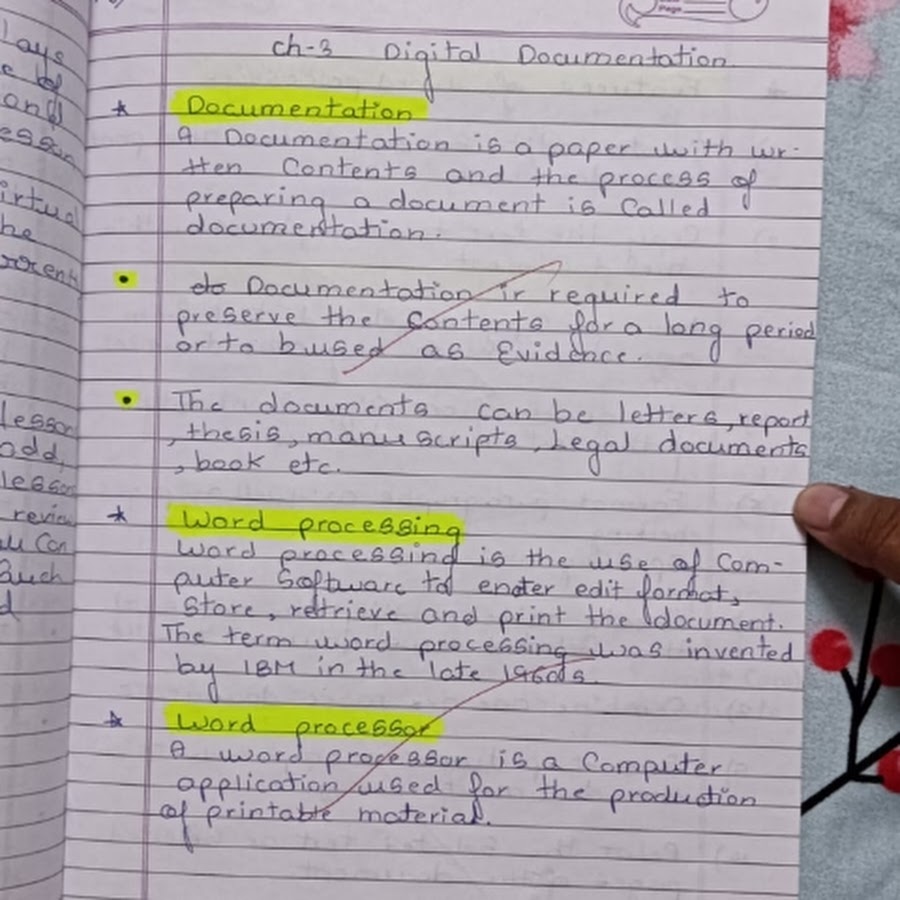 Page
ch-3 Digital Documentation
* Documentation
A Documentation is a paper with wr-
tten Contents and the process of
preparing a document is Called
documentation.
• Documentation is required to
preserve the Contents for a long period
or to b used as Evidence.
• The documents can be letters, report
, thesis, manu scripts, Legal documents
, book etc.
* Word processing
Word processing is the use of Com-
puter Software to enter edit format,
Store, retrieve and print the document.
The term word processing was invented
by IBM in the late 1960s.
* Word processor
A word processor is a Computer
application used for the production
of printable material.
lays
and
lesson
add,
lesson
review
Such